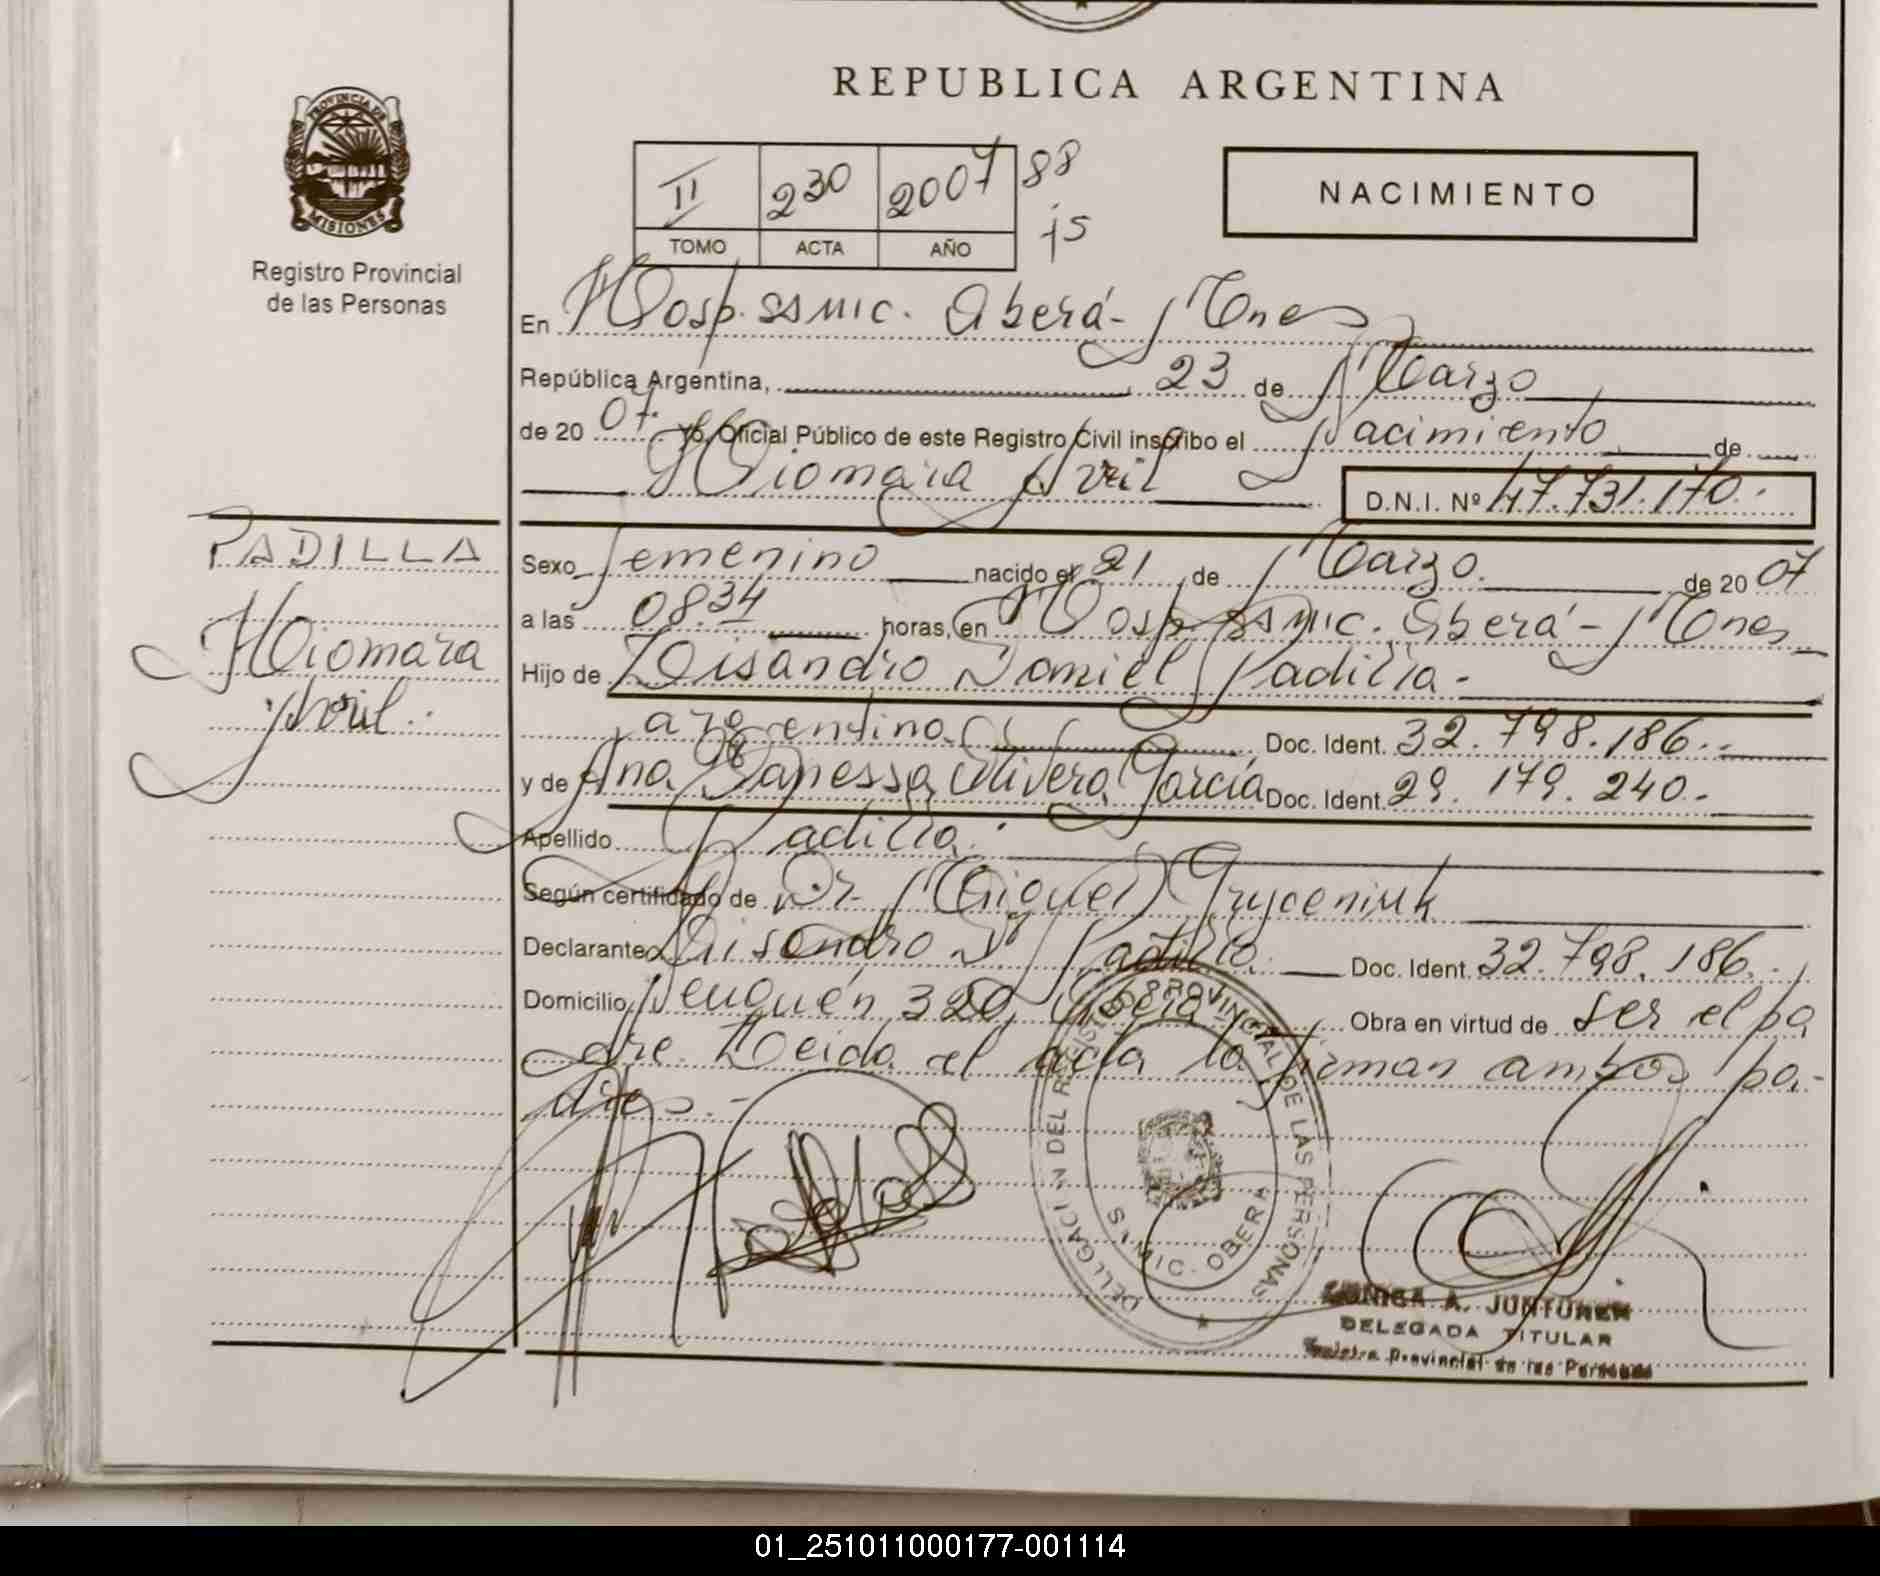 REPUBLICA ARGENTINA
PROVINCIA DE
MISIONES
Registro Provincial
de las Personas
II 230 2007 88
TOMO ACTA AÑO js
NACIMIENTO
En Hosp. SSMIC. Oberá - Mnes
República Argentina, 23 de Marzo
de 20 07. Yo, Oficial Público de este Registro Civil inscribo el Nacimiento de
Xiomara Avril D.N.I. Nº 47.731.170.
PADILLA
Xiomara
Avril.
Sexo femenino nacido el 21 de Marzo de 20 07
a las 08.34 horas, en Hosp. SSMIC. Oberá - Mnes
Hijo de Lisandro Daniel Padilla.
argentino Doc. Ident. 32.798.186.
y de Ana Vanessa Olivera García Doc. Ident. 29.179.240.
Apellido Padilla.
Según certificado de Dr. Miguel Gryceniuk
Declarante Lisandro D. Padilla. Doc. Ident. 32.798.186.
Domicilio Neuquén 320, Oberá Obra en virtud de ser el pa
dre. Leída el acta la firman ambos pa-
dres.-
DELEGACION DEL REGISTRO PROVINCIAL DE LAS PERSONAS
OBERA
A. JUNTUNEN
DELEGADA TITULAR
Registro Provincial de las Personas
01_251011000177-001114